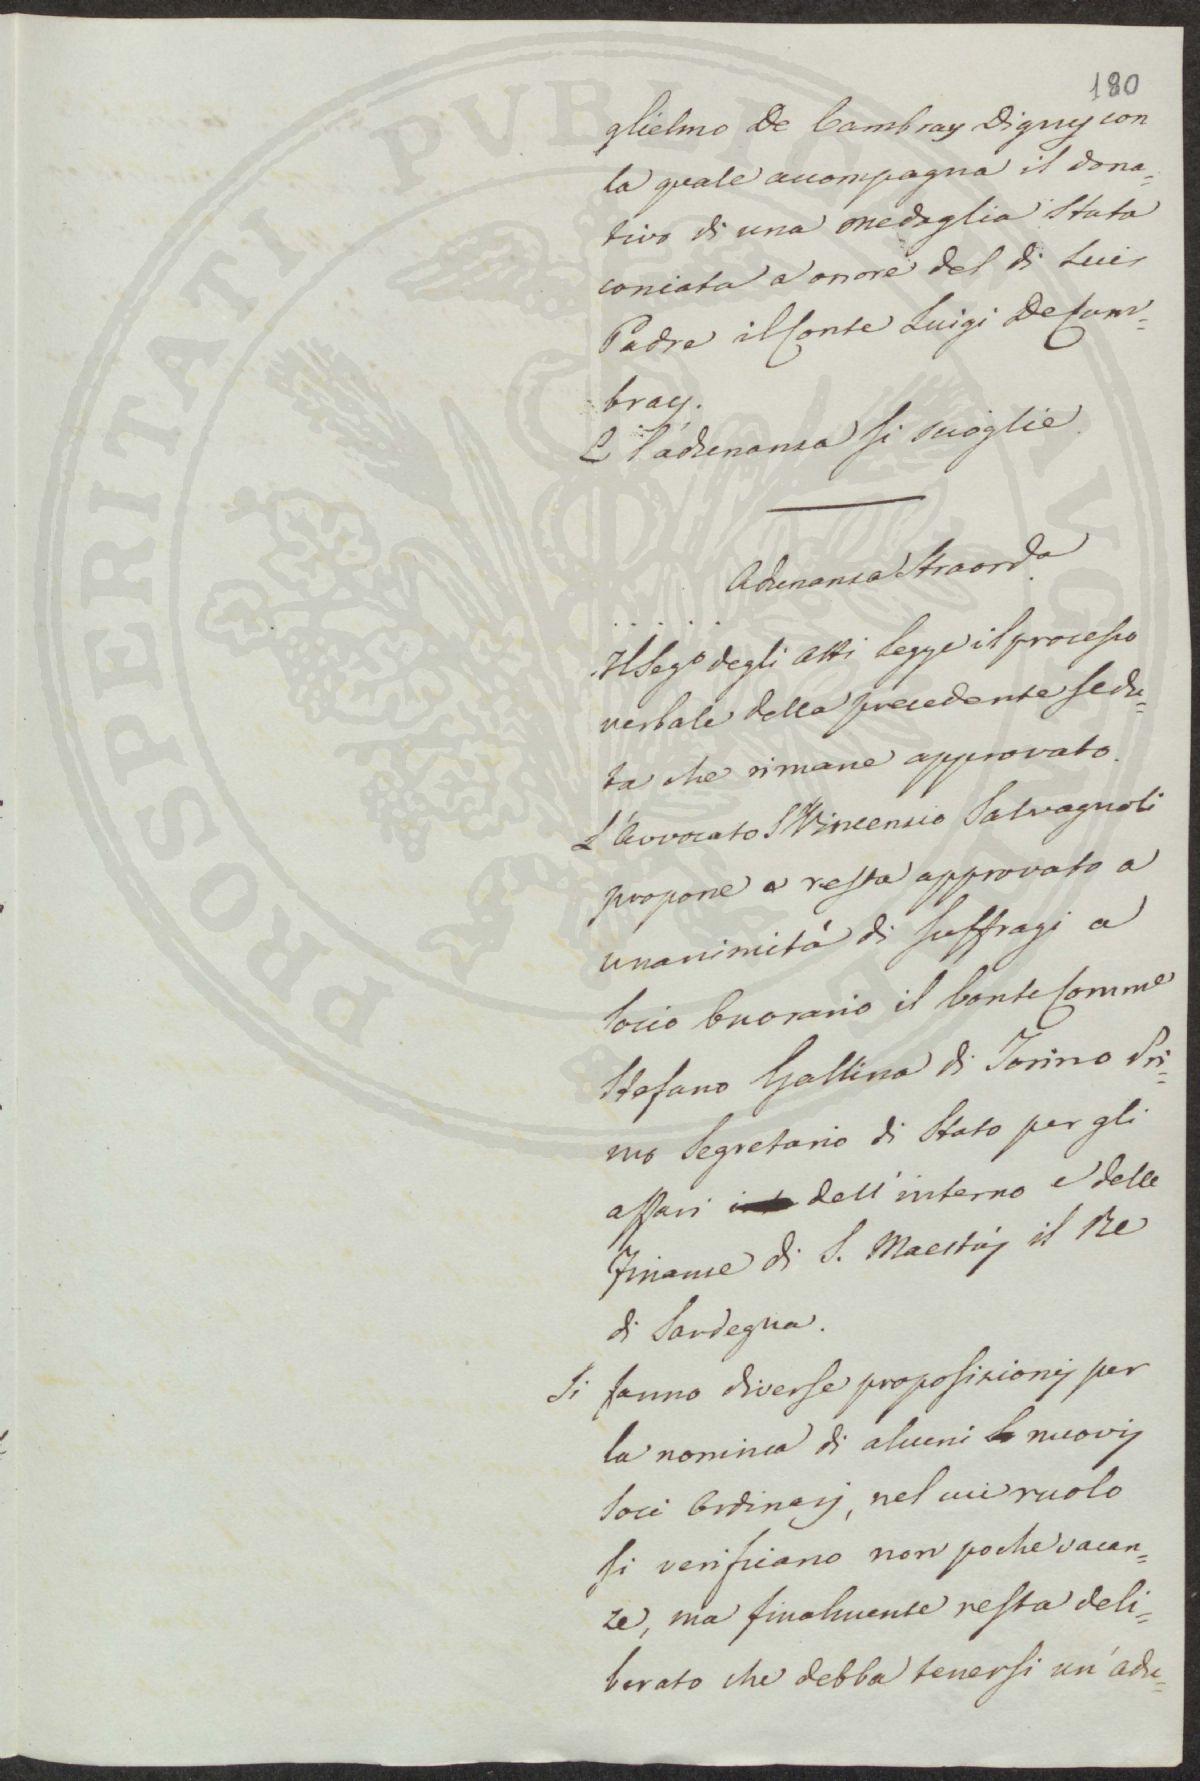 180
glielmo De Cambray Digny con
la quale accompagna il dona=
tivo di una medaglia stata
coniata a onore del di Lui
Padre il Conte Luigi De Cam=
bray.
E l'adunanza si scioglie.
Adunanza Straord.a
Il Seg.o degli Atti legge il processo
verbale della precedente sedu=
ta che rimane approvato.
L'Avvocato Vincenzio Salvagnoli
propone e resta approvato a
unanimità di suffragi a
Socio Onorario il Conte Comm.e
Stefano Gallina di Torino Pri=
mo Segretario di Stato per gli
affari dell'interno e delle
Finanze di S. Maestà il Re
di Sardegna.
Si fanno diverse proposizionij per
la nomina di alcuni nuovij
Soci Ordinarj, nel cui ruolo
si verificano non poche vacan=
ze, ma finalmente resta deli=
berato che debba tenersi un'adu=
PROSPERITATI PVBLICAE AVGENDAE